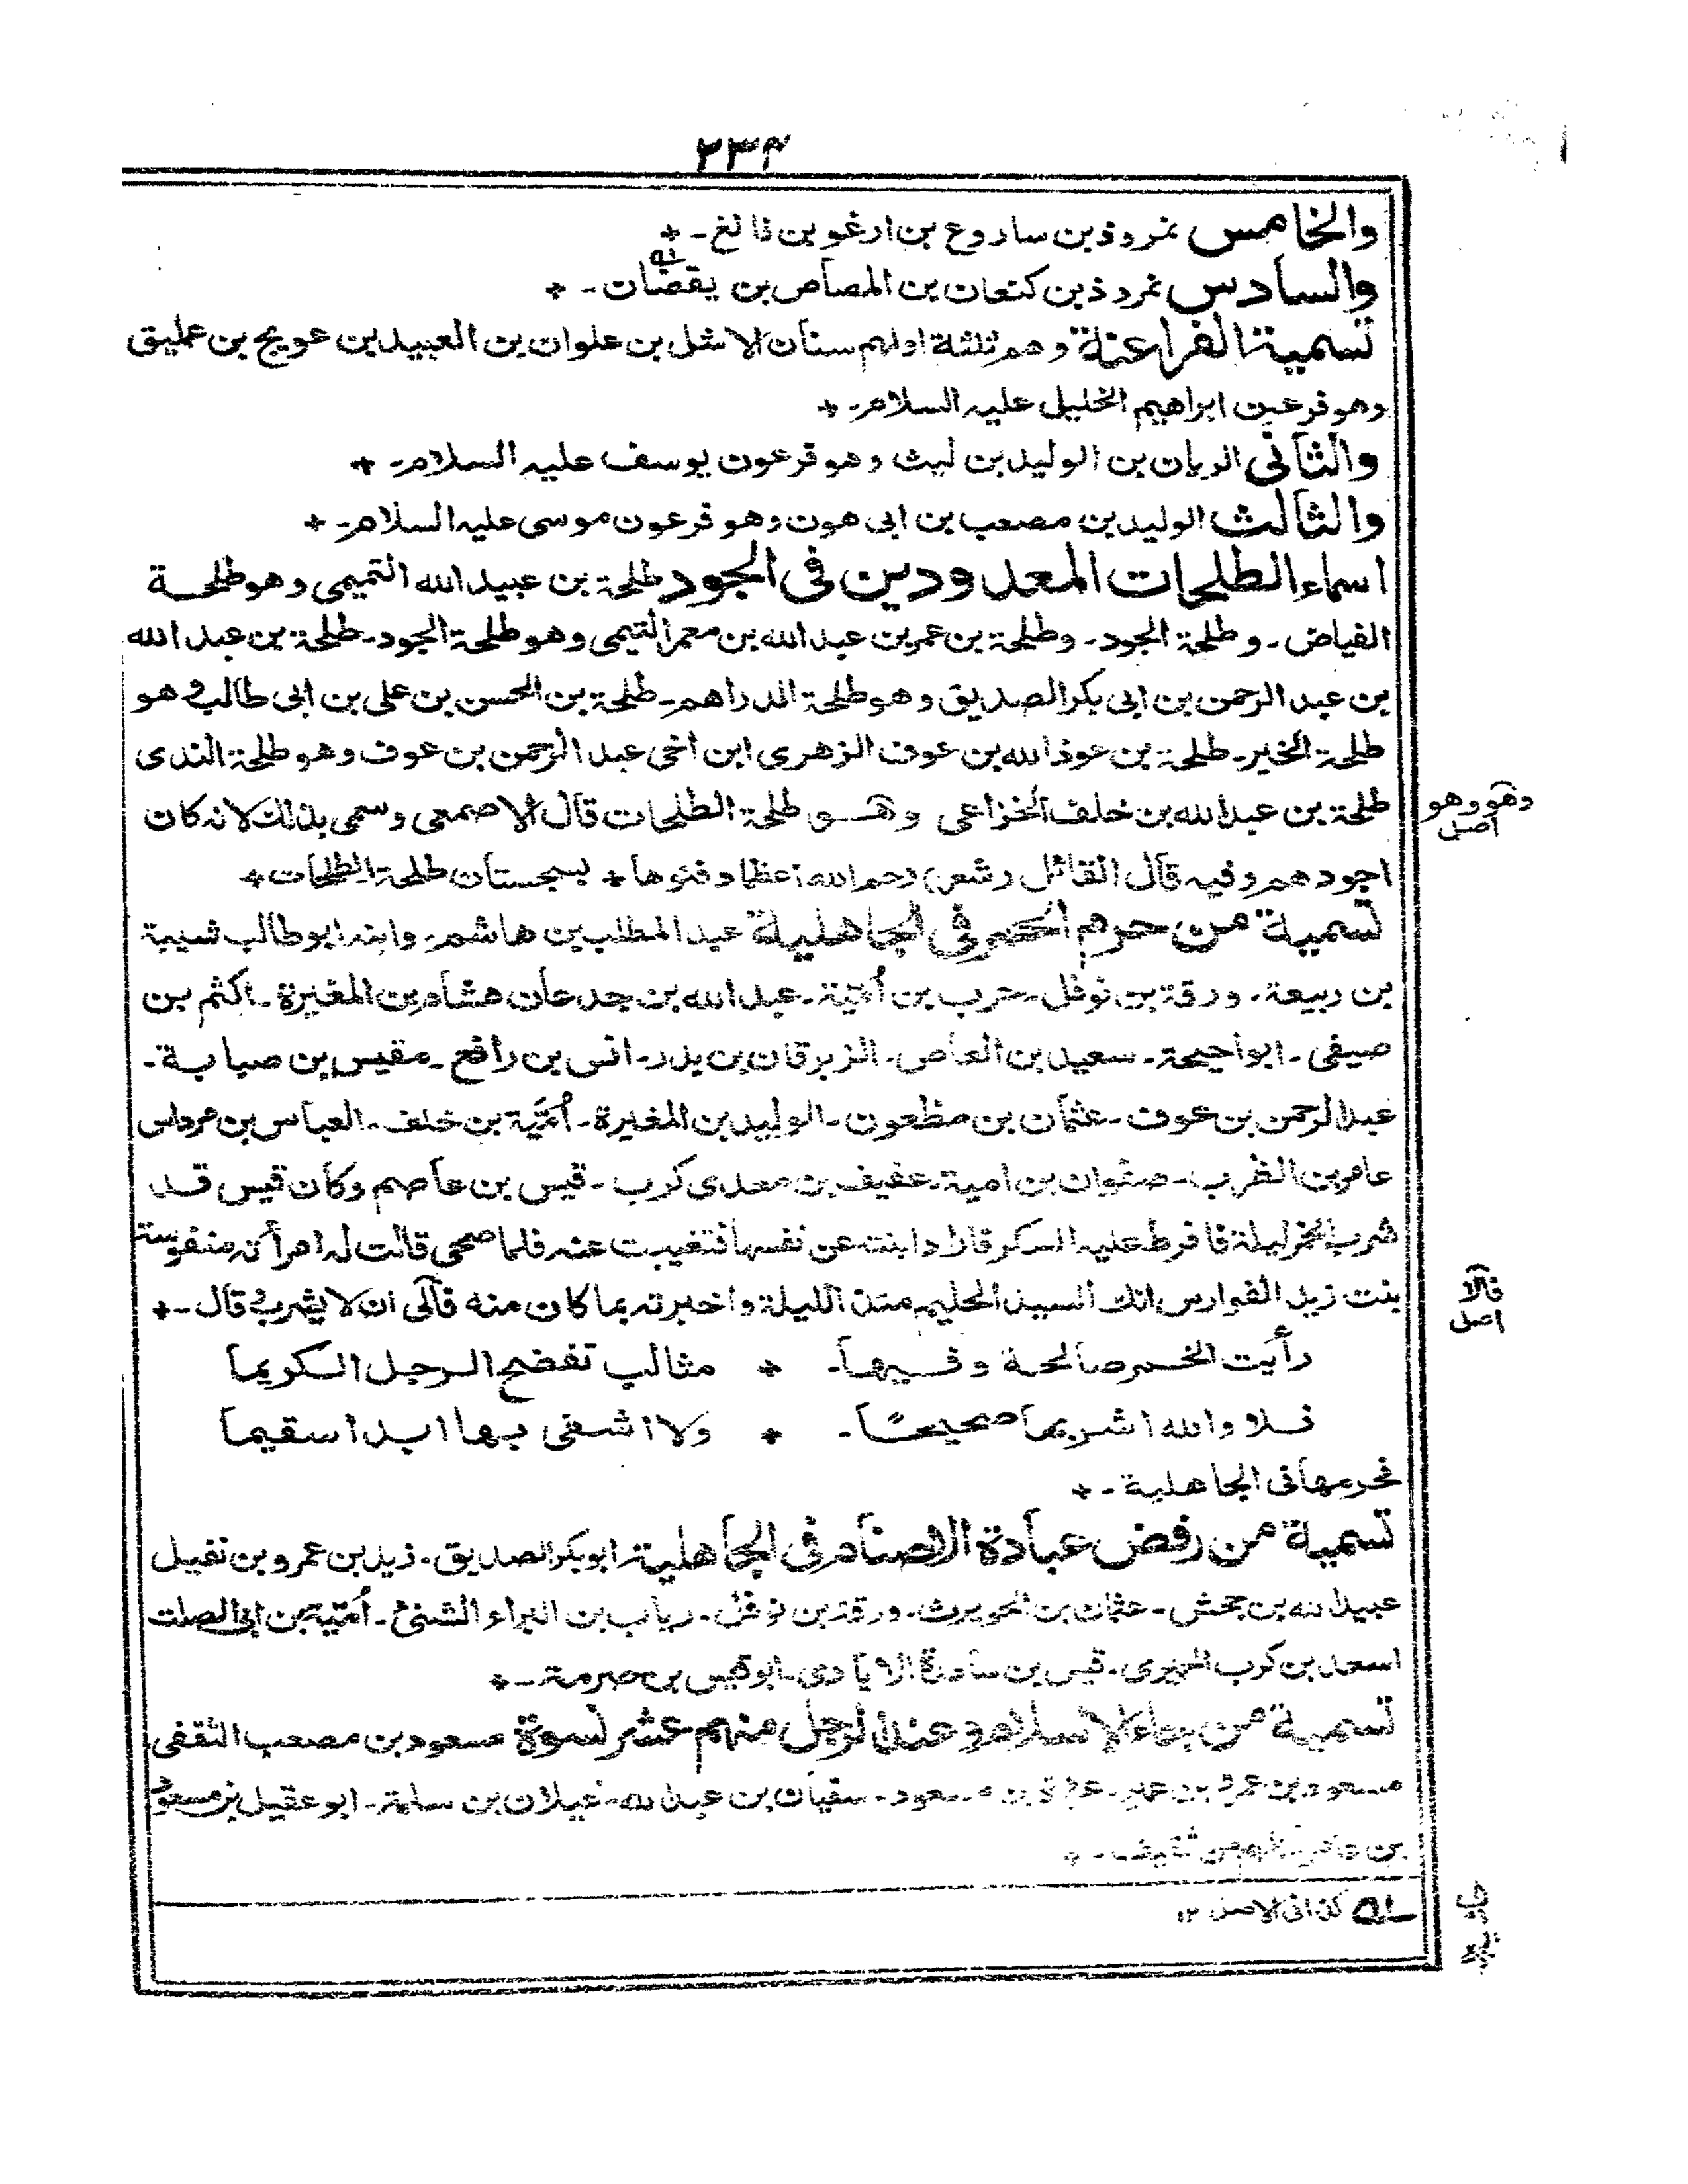 ٢٣٤
والخامس نمروذ بن ساروع بن ارغو بن فالغ ـ +
والسادس نمروذ بن كنعان بن المصاص بن يقضان ـ +
تسمية الفراعنة وهم ثلثة اولهم سنان الاشل بن علوان بن العبيد بن عويج بن عمليق
وهو فرعون ابراهيم الخليل عليه السلام ـ +
والثانى الريان بن الوليد بن ليث وهو فرعون يوسف عليه السلام ـ +
والثالث الوليد بن مصعب بن ابى هون وهو فرعون موسى عليه السلام ـ +
اسماء الطلحات المعدودين فى الجود طلحة بن عبيد الله التميمى وهو طلحة
الفياض ـ و طلحة الجود ـ وطلحة بن عمر بن عبد الله بن معمر التيمى وهو طلحة الجود ـ طلحة بن عبد الله
بن عبد الرحمن بن ابى بكر الصديق وهو طلحة الدراهم ـ طلحة بن الحسن بن على بن ابى طالب و هو
طلحة الخير ـ طلحة بن عوذ الله بن عوف الزهرى ابن اخى عبد الرحمن بن عوف وهو طلحة الندى
طلحة بن عبد الله بن خلف الخزاعى وهو طلحة الطلحات قال الاصمعى وسمى بذلك لانه كان
وهو وهو
اصل
اجودهم وفيه قال القائل (شعر) رحم الله اعظما دفنوها + بسجستان طلحة الطلحات +
تسمية من حرم الخمر فى الجاهلية عبد المطلب بن هاشم ـ وابنه ابو طالب شيبة
بن ربيعة ـ ورقة بن نوفل ـ حرب بن أمية ـ عبد الله بن جدعان هشام بن المغيرة ـ اكثم بن
صيفى ـ ابو احيحة ـ سعيد بن العاص ـ الزبرقان بن بدر ـ انس بن رافع ـ مقيس بن صبابة ـ
عبد الرحمن بن عوف ـ عثمان بن مظعون ـ الوليد بن المغيرة ـ أميّة بن خلف ـ العباس بن مرداس
عامر بن الظرب ـ صفوان بن امية ـ عفيف بن معدى كرب ـ قيس بن عاصم وكان قيس قد
شرب الخمر ليلة فافرط عليه السكر فاراد ابنته عن نفسها فتغيبت عنه فلما صحى قالت له امرأته منفوسة
بنت زيد الفوارس انك السيد الحليم منذ الليلة واخبرته بما كان منه فآلى ان لا يشرب و قال ـ +
فالا
اصل
رأيت الخمر صالحة وفيها ـ + مثالب تفضح الرجل الكريما
فلا والله اشربها صحيحًا ـ + ولا اشفى بها ابدا سقيما
فحرمها فى الجاهلية ـ +
تسمية من رفض عبادة الاصنام فى الجاهلية ابو بكر الصديق ـ زيد بن عمرو بن نفيل
عبيد الله بن جحش ـ عثمان بن الحويرث ـ ورقة بن نوفل ـ رباب بن البراء الشنى ـ أمية بن ابى الصلت
اسعد بن كرب الحميرى ـ قيس بن ساعدة الايادى ـ ابو قيس بن صرمة ـ +
تسمية من جاء الاسلام وعند الرجل منهم عشر نسوة مسعود بن مصعب الثقفى
مسعود بن عمرو بن عمير ـ عروة بن مسعود ـ سفيان بن عبد الله ـ غيلان بن سلمة ـ ابو عقيل بن مسعود
بن عامر كلهم من ثقيف ـ +
كذا فى الاصل ١٢